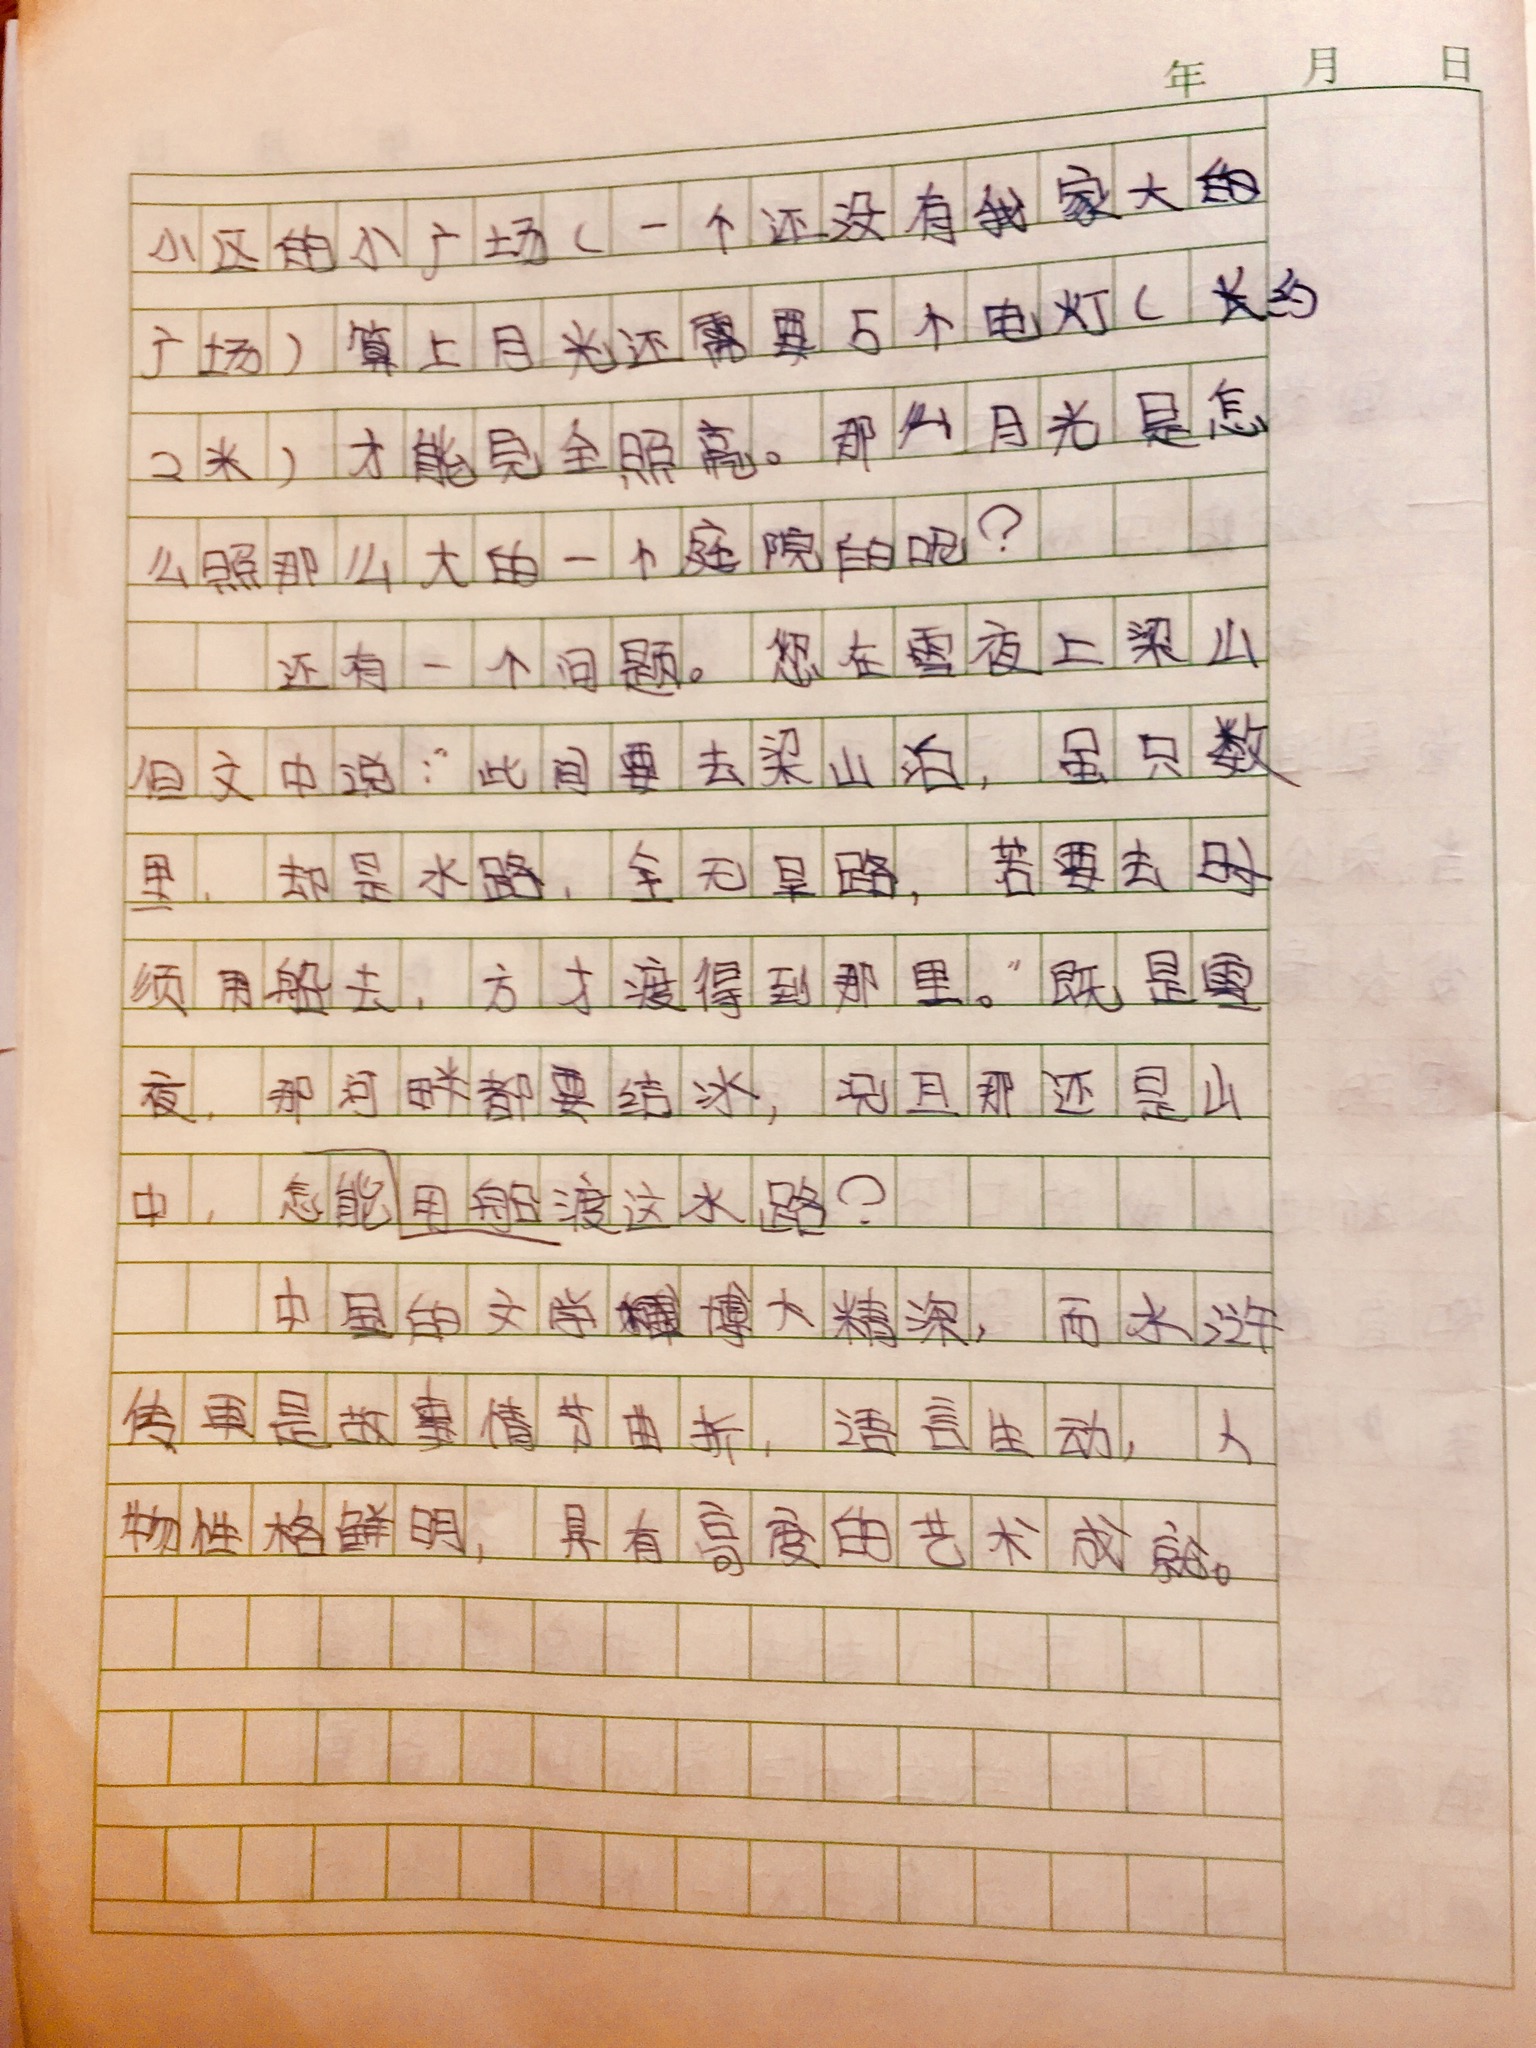 年 月 日
小区的小广场（一个还没有我家大的
广场）算上月光还需要5个电灯（长约
2米）才能见全照亮。那么月光是怎
么照那么大的一个庭院的呢？
还有一个问题。您在雪夜上梁山
但文中说：“此间要去梁山泊，虽只数
里，却是水路，全无旱路，若要去时
须用船去，方才渡得到那里。”既是雪
夜，那河畔都要结冰，况且那还是山
中，怎能用船渡这水路？
中国的文学博大精深，而水浒
传更是故事情节曲折，语言生动，人
物性格鲜明，具有高度的艺术成就。